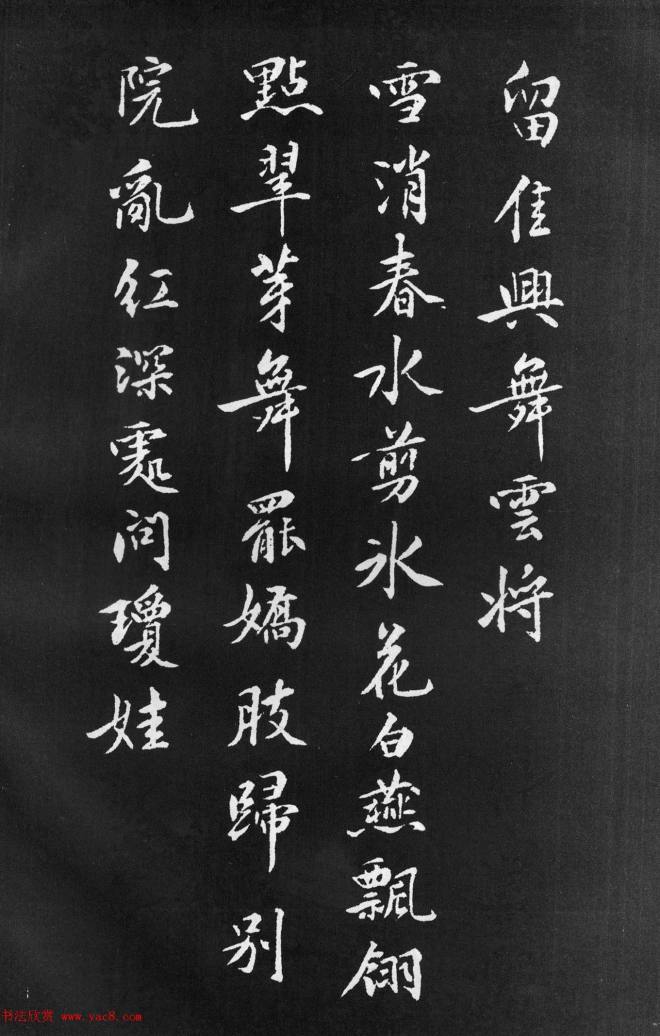 留佳興舞雲將
雪消春水剪冰花白燕飄翎
點翠芽舞罷嬌肢歸別
院亂紅深處問瓊娃
书法欣赏 www.yac8.com